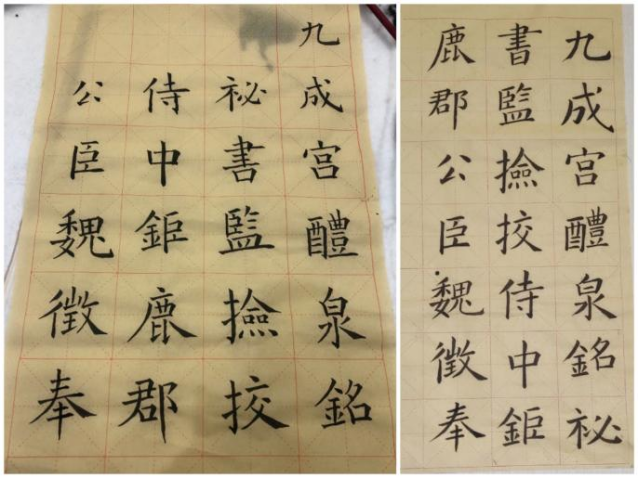 九成宫醴泉銘
祕書監撿挍
侍中鉅鹿郡
公臣魏徵奉
九成宫醴泉銘祕
書監撿挍侍中鉅
鹿郡公臣魏徵奉